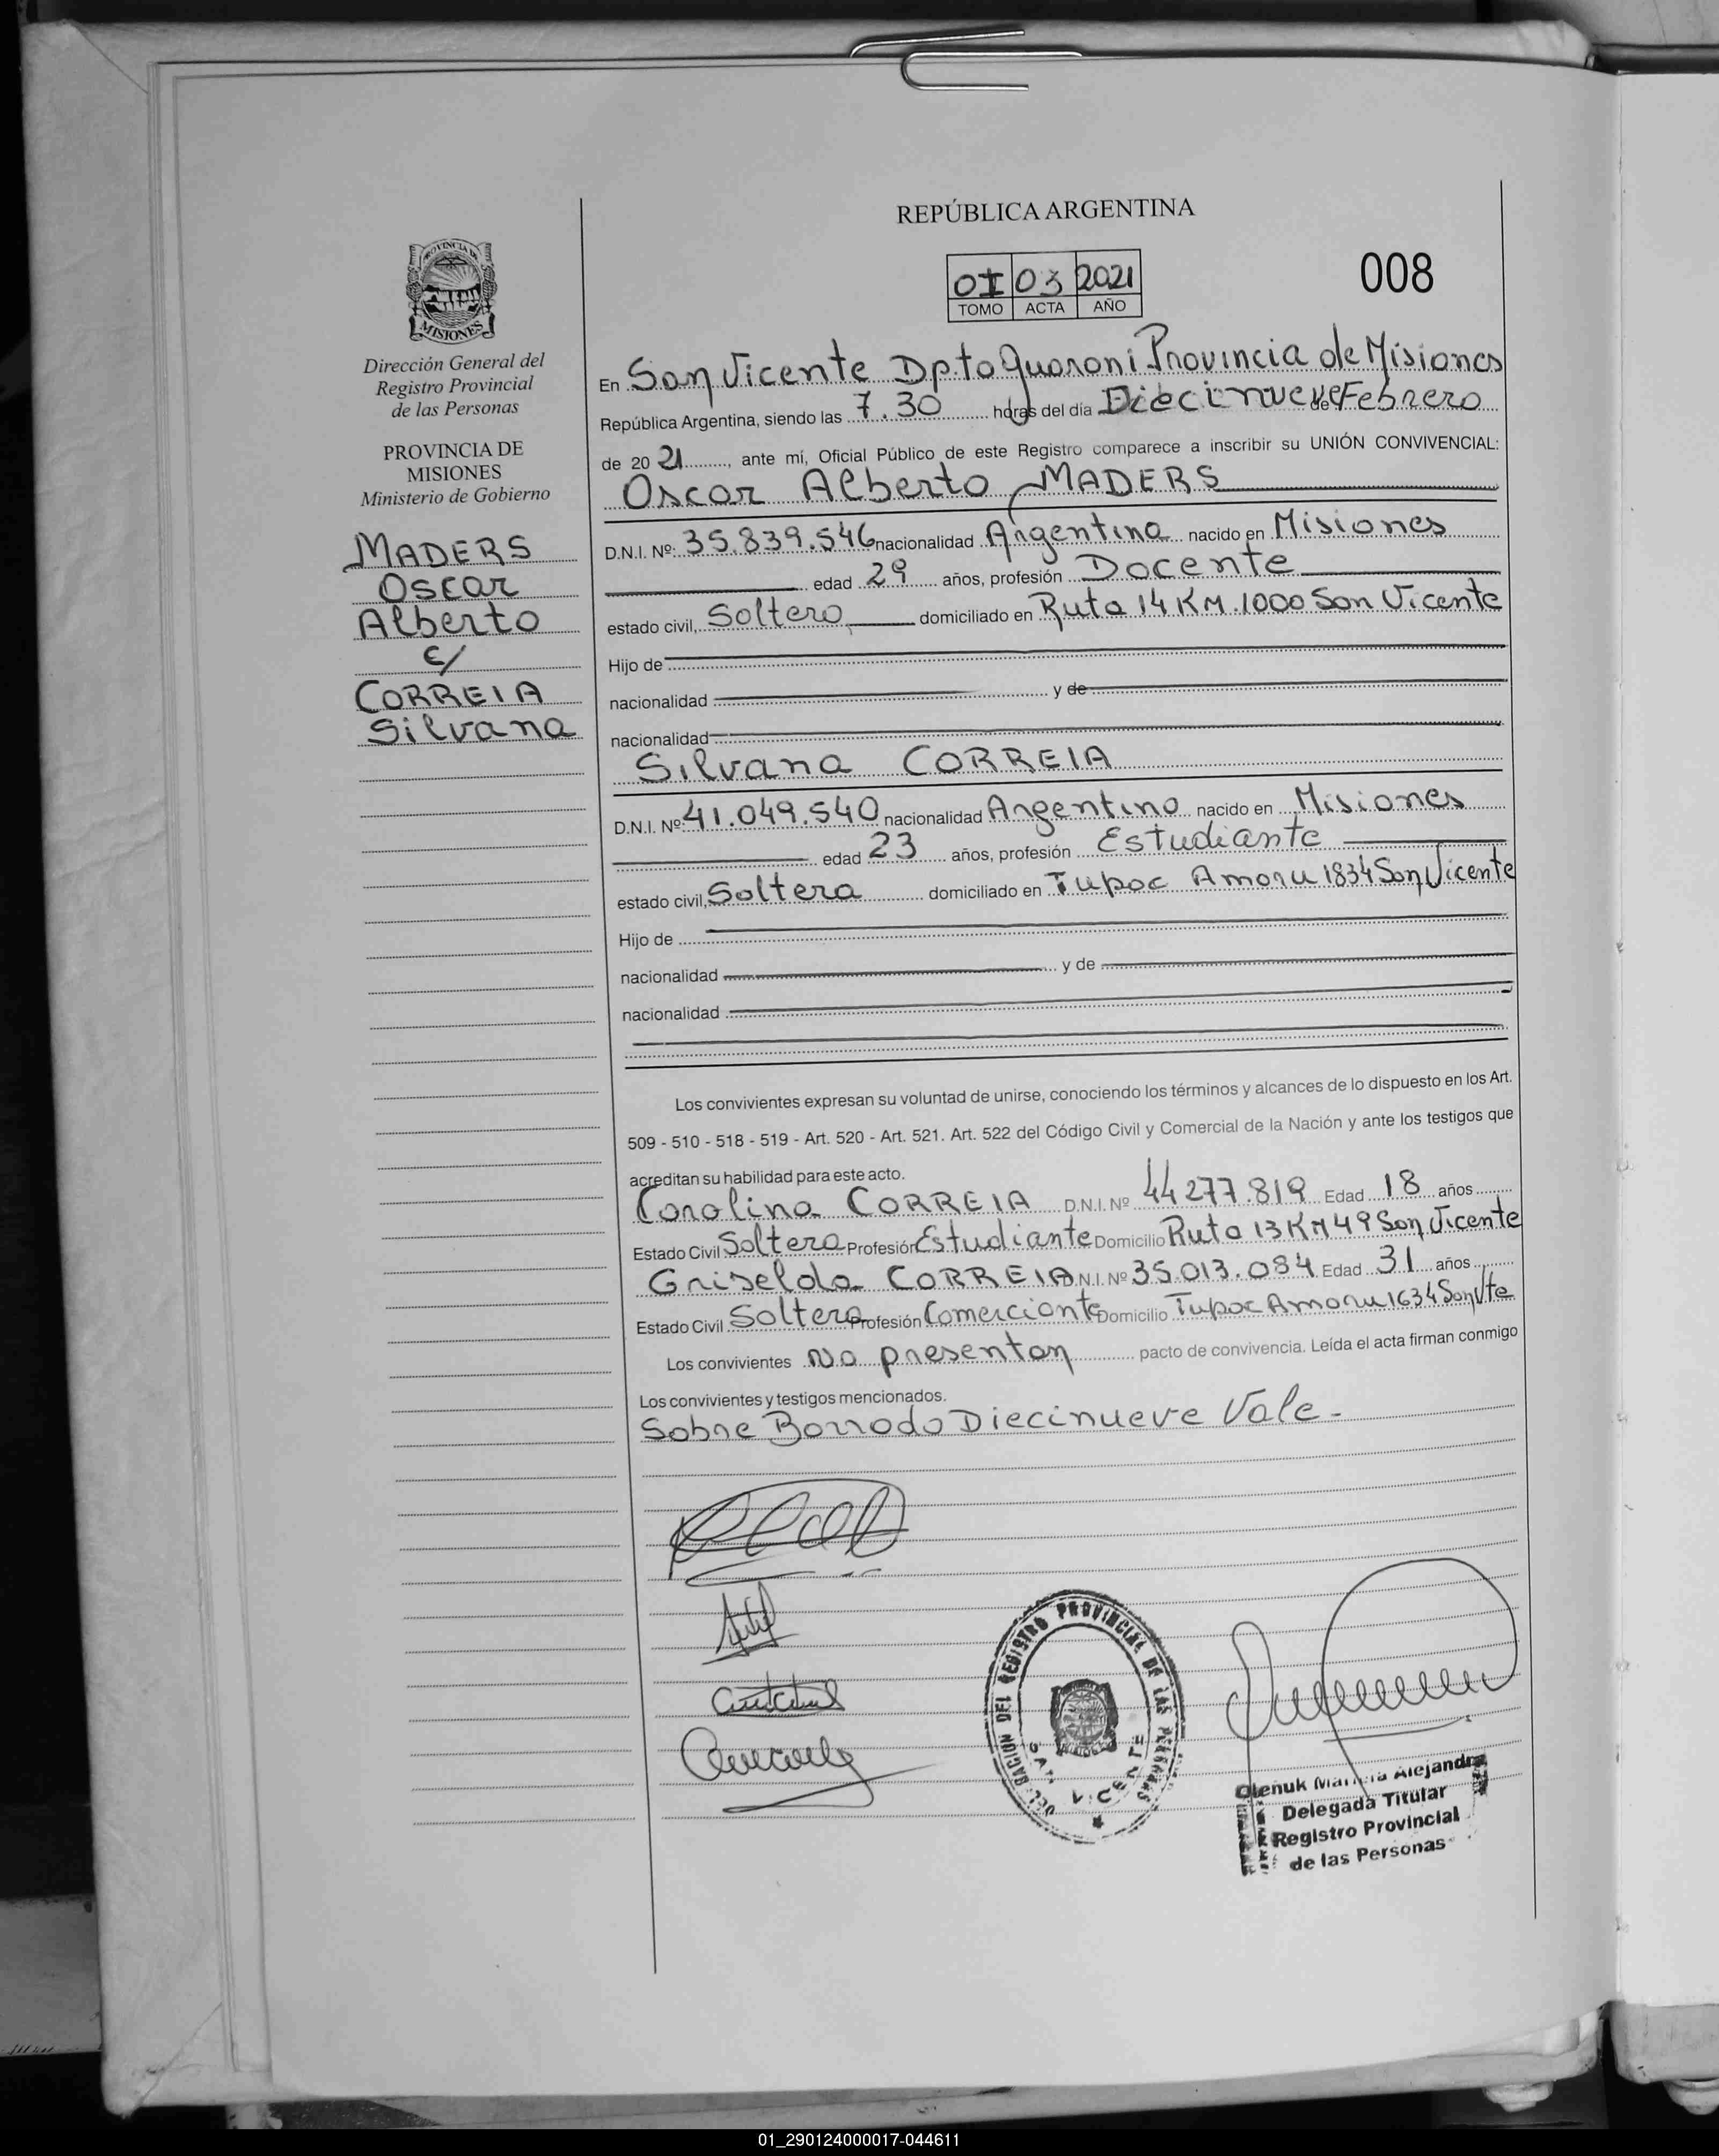 REPÚBLICA ARGENTINA
PROVINCIA DE
MISIONES
Dirección General del
Registro Provincial
de las Personas
PROVINCIA DE
MISIONES
Ministerio de Gobierno
MADERS
Oscar
Alberto
c/
CORREIA
Silvana
0I 03 2021
TOMO ACTA AÑO
008
En San Vicente Dpto Guaraní Provincia de Misiones
República Argentina, siendo las 7.30 horas del día Diecinueve de Febrero
de 2021, ante mí, Oficial Público de este Registro comparece a inscribir su UNIÓN CONVIVENCIAL:
Oscar Alberto MADERS
D.N.I. Nº: 35.839.546 nacionalidad Argentina nacido en Misiones
edad 29 años, profesión Docente
estado civil, Soltero domiciliado en Ruta 14 KM.1000 San Vicente
Hijo de
nacionalidad y de
nacionalidad
Silvana CORREIA
D.N.I. Nº: 41.049.540 nacionalidad Argentina nacido en Misiones
edad 23 años, profesión Estudiante
estado civil, Soltera domiciliado en Tupac Amaru 1834 San Vicente
Hijo de
nacionalidad y de
nacionalidad
Los convivientes expresan su voluntad de unirse, conociendo los términos y alcances de lo dispuesto en los Art.
509 - 510 - 518 - 519 - Art. 520 - Art. 521. Art. 522 del Código Civil y Comercial de la Nación y ante los testigos que
acreditan su habilidad para este acto.
Carolina CORREIA D.N.I. Nº 44277.819 Edad 18 años
Estado Civil Soltera Profesión Estudiante Domicilio Ruta 13 KM 49 San Vicente
Griselda CORREIA D.N.I. Nº 35.013.084 Edad 31 años
Estado Civil Soltera Profesión Comerciante Domicilio Tupac Amaru 1634 San Vte
Los convivientes No presentan pacto de convivencia. Leída el acta firman conmigo
Los convivientes y testigos mencionados.
Sobre Borrado Diecinueve Vale.-
DELEGACION DEL REGISTRO PROVINCIAL DE LAS PERSONAS
SAN VICENTE
Olenuk Mariela Alejandra
Delegada Titular
Registro Provincial
de las Personas
01_290124000017-044611